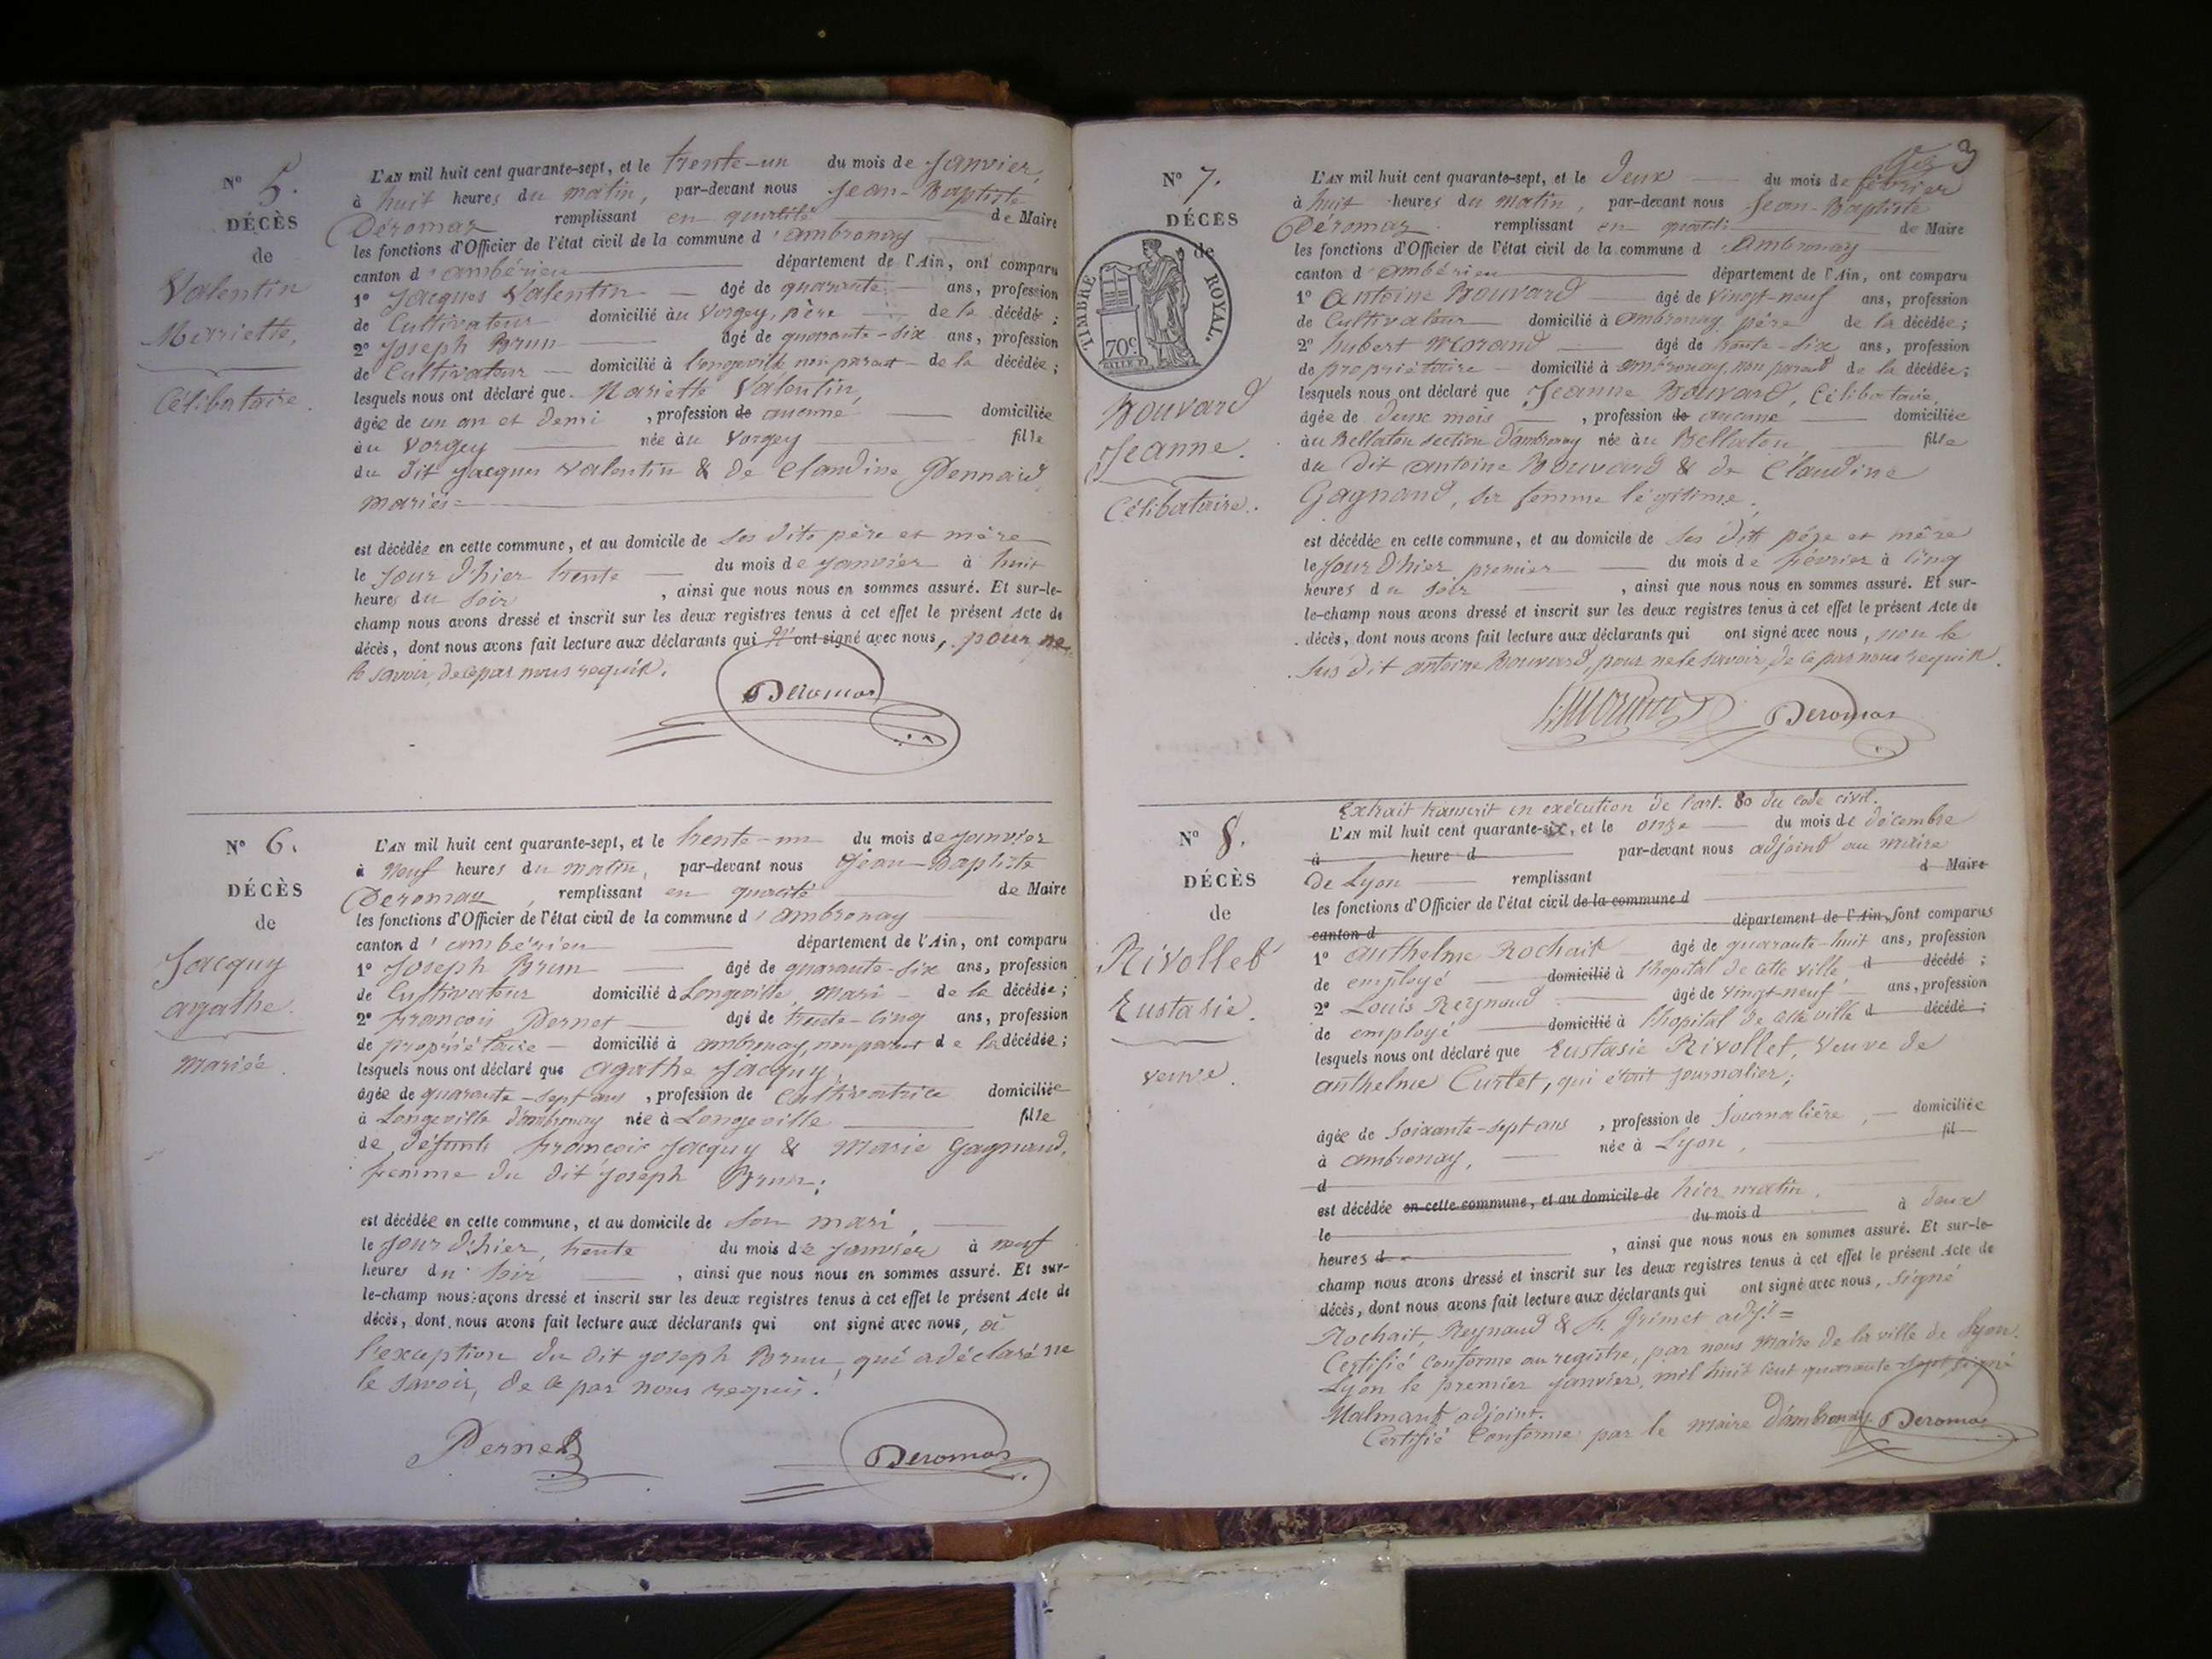 N° 5.
DÉCÈS
de
Valentin
Mariette,
Célibataire.
L'AN mil huit cent quarante-sept, et le trente-un du mois de Janvier,
à huit heures du matin, par-devant nous Jean-Baptiste
Déromas remplissant en qualité de Maire
les fonctions d'Officier de l'état civil de la commune d'ambronay
canton d'ambérieu département de l'Ain, ont comparu
1° Jacques Valentin âgé de quarante ans, profession
de Cultivateur domicilié au Vorgey, père de la décédée;
2° Joseph Brun âgé de quarante-six ans, profession
de Cultivateur domicilié à longeville non parent de la décédée;
lesquels nous ont déclaré que Mariette Valentin,
âgée de un an et demi, profession de aucune domiciliée
au Vorgey née au Vorgey fille
du dit Jacques Valentin & de Claudine
mariés
est décédée en cette commune, et au domicile de ses dits père et mère
le jour d'hier trente du mois de janvier à huit
heures du soir, ainsi que nous nous en sommes assuré. Et sur-le-
champ nous avons dressé et inscrit sur les deux registres tenus à cet effet le présent Acte de
décès, dont nous avons fait lecture aux déclarants qui n'ont signé avec nous, pour ne
le savoir, de ce par nous requis.
Deromas
N° 6.
DÉCÈS
de
Jacquy
agathe.
mariée.
L'AN mil huit cent quarante-sept, et le trente-un du mois de janvier
à Neuf heures du matin, par-devant nous Jean-Baptiste
Deromas, remplissant en qualité de Maire
les fonctions d'Officier de l'état civil de la commune d'ambronay
canton d'ambérieu département de l'Ain, ont comparu
1° Joseph Brun âgé de quarante-six ans, profession
de Cultivateur domicilié à Longeville, mari de la décédée;
2° françois Pernet âgé de trente-cinq ans, profession
de propriétaire domicilié à ambronay, non parent de la décédée;
lesquels nous ont déclaré que agathe Jacquy,
âgée de quarante-sept ans, profession de cultivatrice domiciliée
à Longeville d'ambronay née à Longeville fille
de défunts françois Jacquy & Marie Gagnand,
femme du dit Joseph Brun;
est décédée en cette commune, et au domicile de son mari,
le jour d'hier, trente du mois de janvier à neuf
heures du soir, ainsi que nous nous en sommes assuré. Et sur-
le-champ nous avons dressé et inscrit sur les deux registres tenus à cet effet le présent Acte de
décès, dont nous avons fait lecture aux déclarants qui ont signé avec nous, à
l'exception du dit joseph Brun, qui a déclaré ne
le savoir, de ce par nous requis.
Pernet
Deromas
3
N° 7.
DÉCÈS
de
TIMBRE ROYAL.
70c
Bouvard
Jeanne.
Célibataire.
L'AN mil huit cent quarante-sept, et le deux du mois de février
à huit heures du matin, par-devant nous Jean-Baptiste
Déromas remplissant en qualité de Maire
les fonctions d'Officier de l'état civil de la commune d'Ambronay
canton d'ambérieu département de l'Ain, ont comparu
1° Antoine Bouvard âgé de vingt-neuf ans, profession
de Cultivateur domicilié à ambronay père de la décédée;
2° hubert Morand âgé de trente-six ans, profession
de propriétaire domicilié à ambronay, non parent de la décédée;
lesquels nous ont déclaré que Jeanne Bouvard, Célibataire,
âgée de deux mois, profession de aucune domiciliée
au Bellaton section d'ambronay née au Bellaton fille
du dit antoine Bouvard & de Claudine
Gagnand, sa femme légitime.
est décédée en cette commune, et au domicile de ses dits père et mère
le jour d'hier premier du mois de février à cinq
heures du soir, ainsi que nous nous en sommes assuré. Et sur-
le-champ nous avons dressé et inscrit sur les deux registres tenus à cet effet le présent Acte de
décès, dont nous avons fait lecture aux déclarants qui ont signé avec nous, non le
sus dit antoine Bouvard, pour ne le savoir, de ce par nous requis.
Morand Deromas
N° 8.
DÉCÈS
de
Rivollet
Eustasie.
veuve.
Extrait transcrit en exécution de l'art. 80 du code civil.
L'AN mil huit cent quarante-six, et le onze du mois de décembre
à heure d par-devant nous adjoint au maire
de Lyon remplissant d Maire
les fonctions d'Officier de l'état civil de la commune d
canton d département de l'Ain, sont comparus
1° Anthelme Rochait âgé de quarante-huit ans, profession
de employé domicilié à l'hopital de cette ville d décédé;
2° Louis Reynaud âgé de vingt-neuf ans, profession
de employé domicilié à l'hopital de cette ville d décédé;
lesquels nous ont déclaré que Eustasie Rivollet, veuve de
anthelme Curtet, qui était journalier;
âgée de soixante-sept ans, profession de Journalière, domiciliée
à ambronay, née à Lyon, fil
d
est décédée en cette commune, et au domicile de hier matin,
le du mois d à deux
heures d, ainsi que nous nous en sommes assuré. Et sur-le-
champ nous avons dressé et inscrit sur les deux registres tenus à cet effet le présent Acte de
décès, dont nous avons fait lecture aux déclarants qui ont signé avec nous, signé
Rochait, Reynaud & Grimet adjt =
Certifié conforme au registre, par nous maire de la ville de Lyon.
Lyon le premier janvier, mil huit cent quarante sept, signé
Malmant adjoint.
Certifié conforme par le maire d'ambronay. Deromas